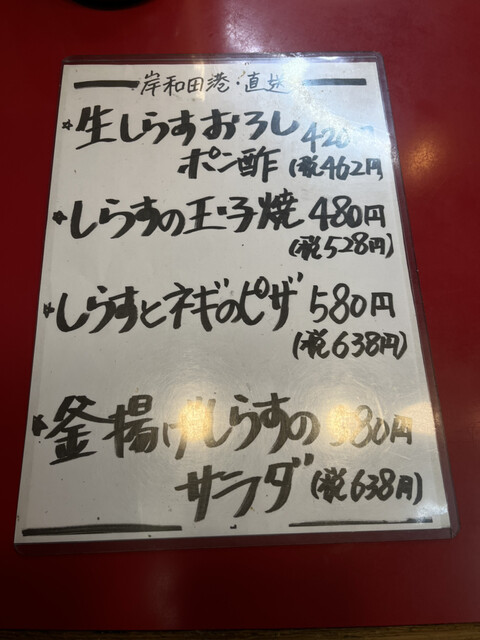 岸和田港・直送
*生しらすおろし 420円
ポン酢 (税462円
*しらすの玉子焼 480円
(税528円)
*しらすとネギのピザ 580円
(税638円)
*釜揚げしらすの 580円
サラダ (税638円)